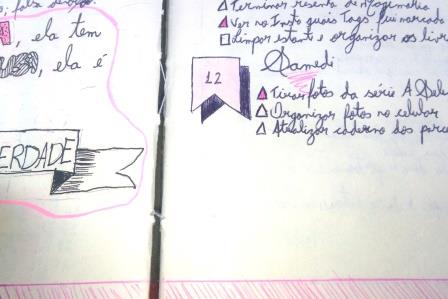 , ela tem
, ela é
ERDADE
Terminar resenha de
Ver no Insta quais Tags fui marcada
Limpar estante e organizar os livr
Samedi
12
Tirar fotos da série A Sele
Organizar fotos no celular
Atualizar caderno dos parce